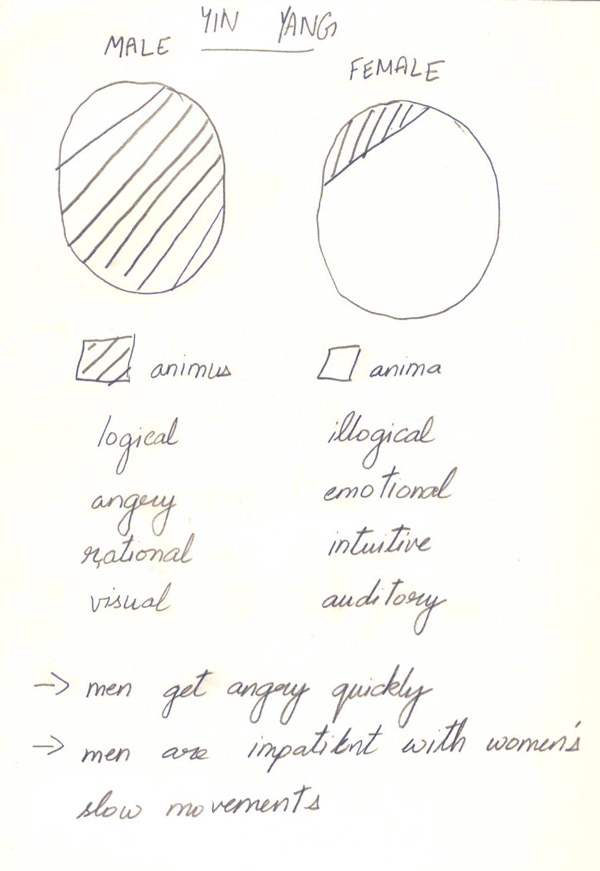 YIN YANG
MALE
FEMALE
animus
anima
logical
illogical
angery
emotional
rational
intuitive
visual
auditory
→ men get angry quickly
→ men are impatient with women's
slow movements